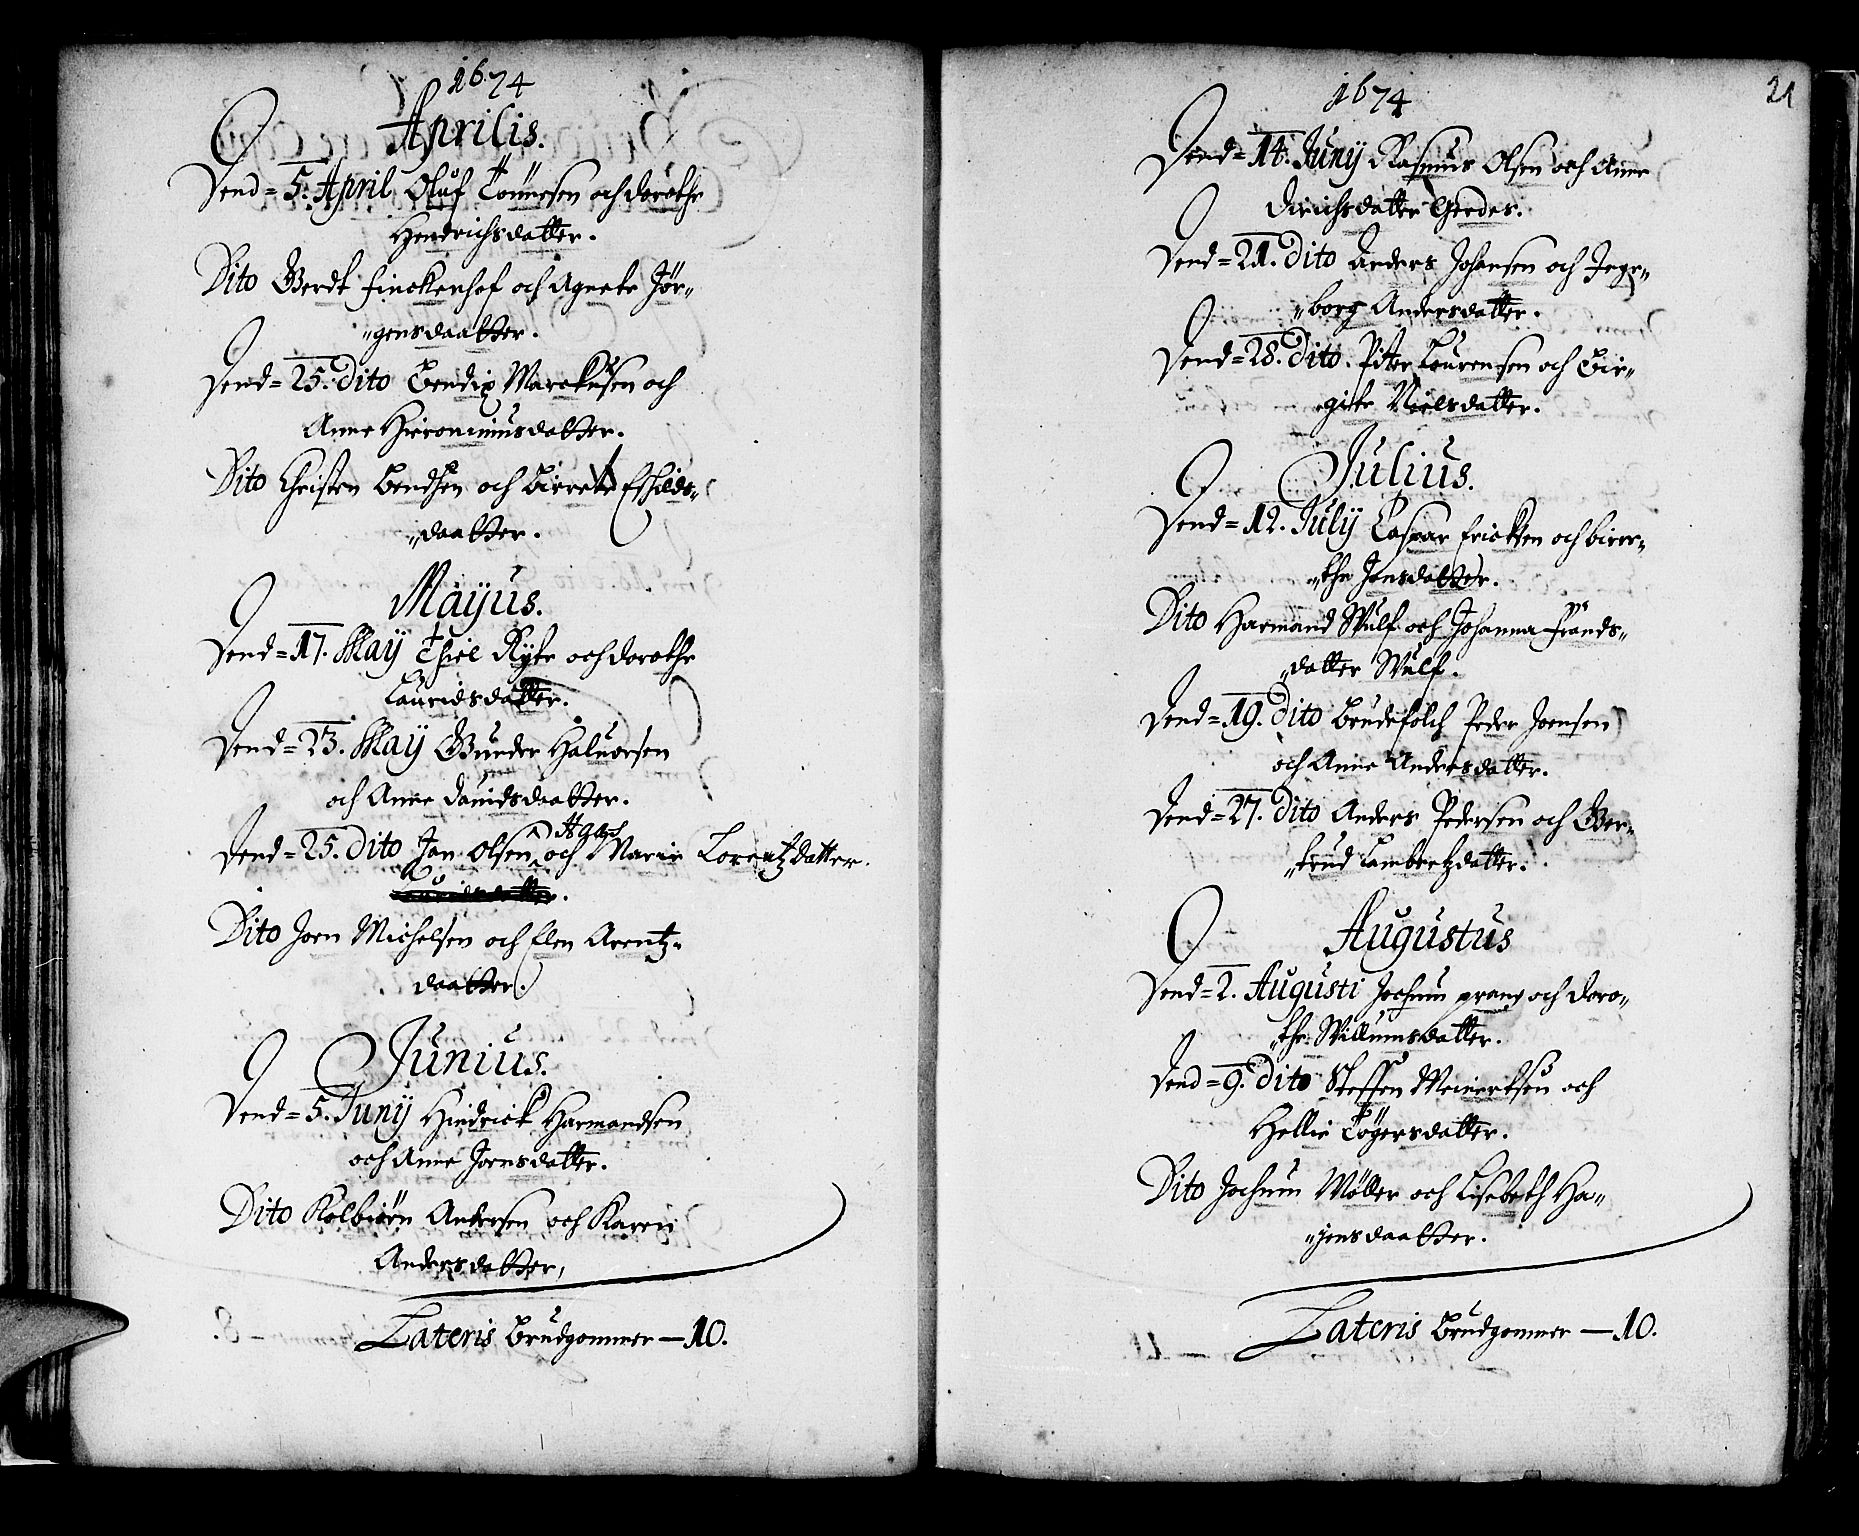 1674
Aprilis.
Dend= 5. April Oluf Tönnesen och dorothe
Hendrichsdatter.
Dito Gerdt finckenhof och Agnete Jör„
„gensdaatter.
Dend= 25. Dito Bendix Marckusen och
Anne Hieronimusdatter.
Dito Christen Bendsen och Birrete Eschilds„
„daatter.
Mäyus.
Dend= 17. May Thiel Ryte och dorothe
Lauridsdatter.
Dend= 23. May Gunder Haluorsen
och Anne dauidsdaatter.
Dend= 25. Dito Jan Olsen och Marie Lorentzdatter.
Dito Joen Michelsen och Elen Arentz„
daatter.
Junius.
Dend= 5. Junij Hindrick Harmandsen
och Anne Joensdatter.
Dito Kolbiörn Andersen och Karen
Andersdatter,
Lateris Brudgommer — 10.
21
1674
Dend= 14. Junij Rasmus Olsen och Anne
Dirichsdatter Gerdes.
Dend= 21. Dito Anders Johansen och Inge„
„borg Andersdatter.
Dend= 28. Dito. Piter Laurensen och Bir„
„gite Nielsdatter.
Julius.
Dend= 12. July Casper Ericksen och birre„
„the Jensdatter.
Dito Harmand Wulf och Johanna frands„
„datter Wulf.
Dend= 19. Dito Brudefolch Peder Joensen
och Anne Andersdatter.
Dend= 27. Dito Anders Pedersen och Ger„
„trud Lambertzdatter.
Augustus
Dend= 2. Augusti Jochum prang och doro„
„the Willumsdatter.
Dend= 9. Dito Steffen Meinertsen och
Hellie Tögersdatter.
Dito Jochum Möller och Lisebeth Ha„
„gensdaatter.
Lateris Brudgommer — 10.